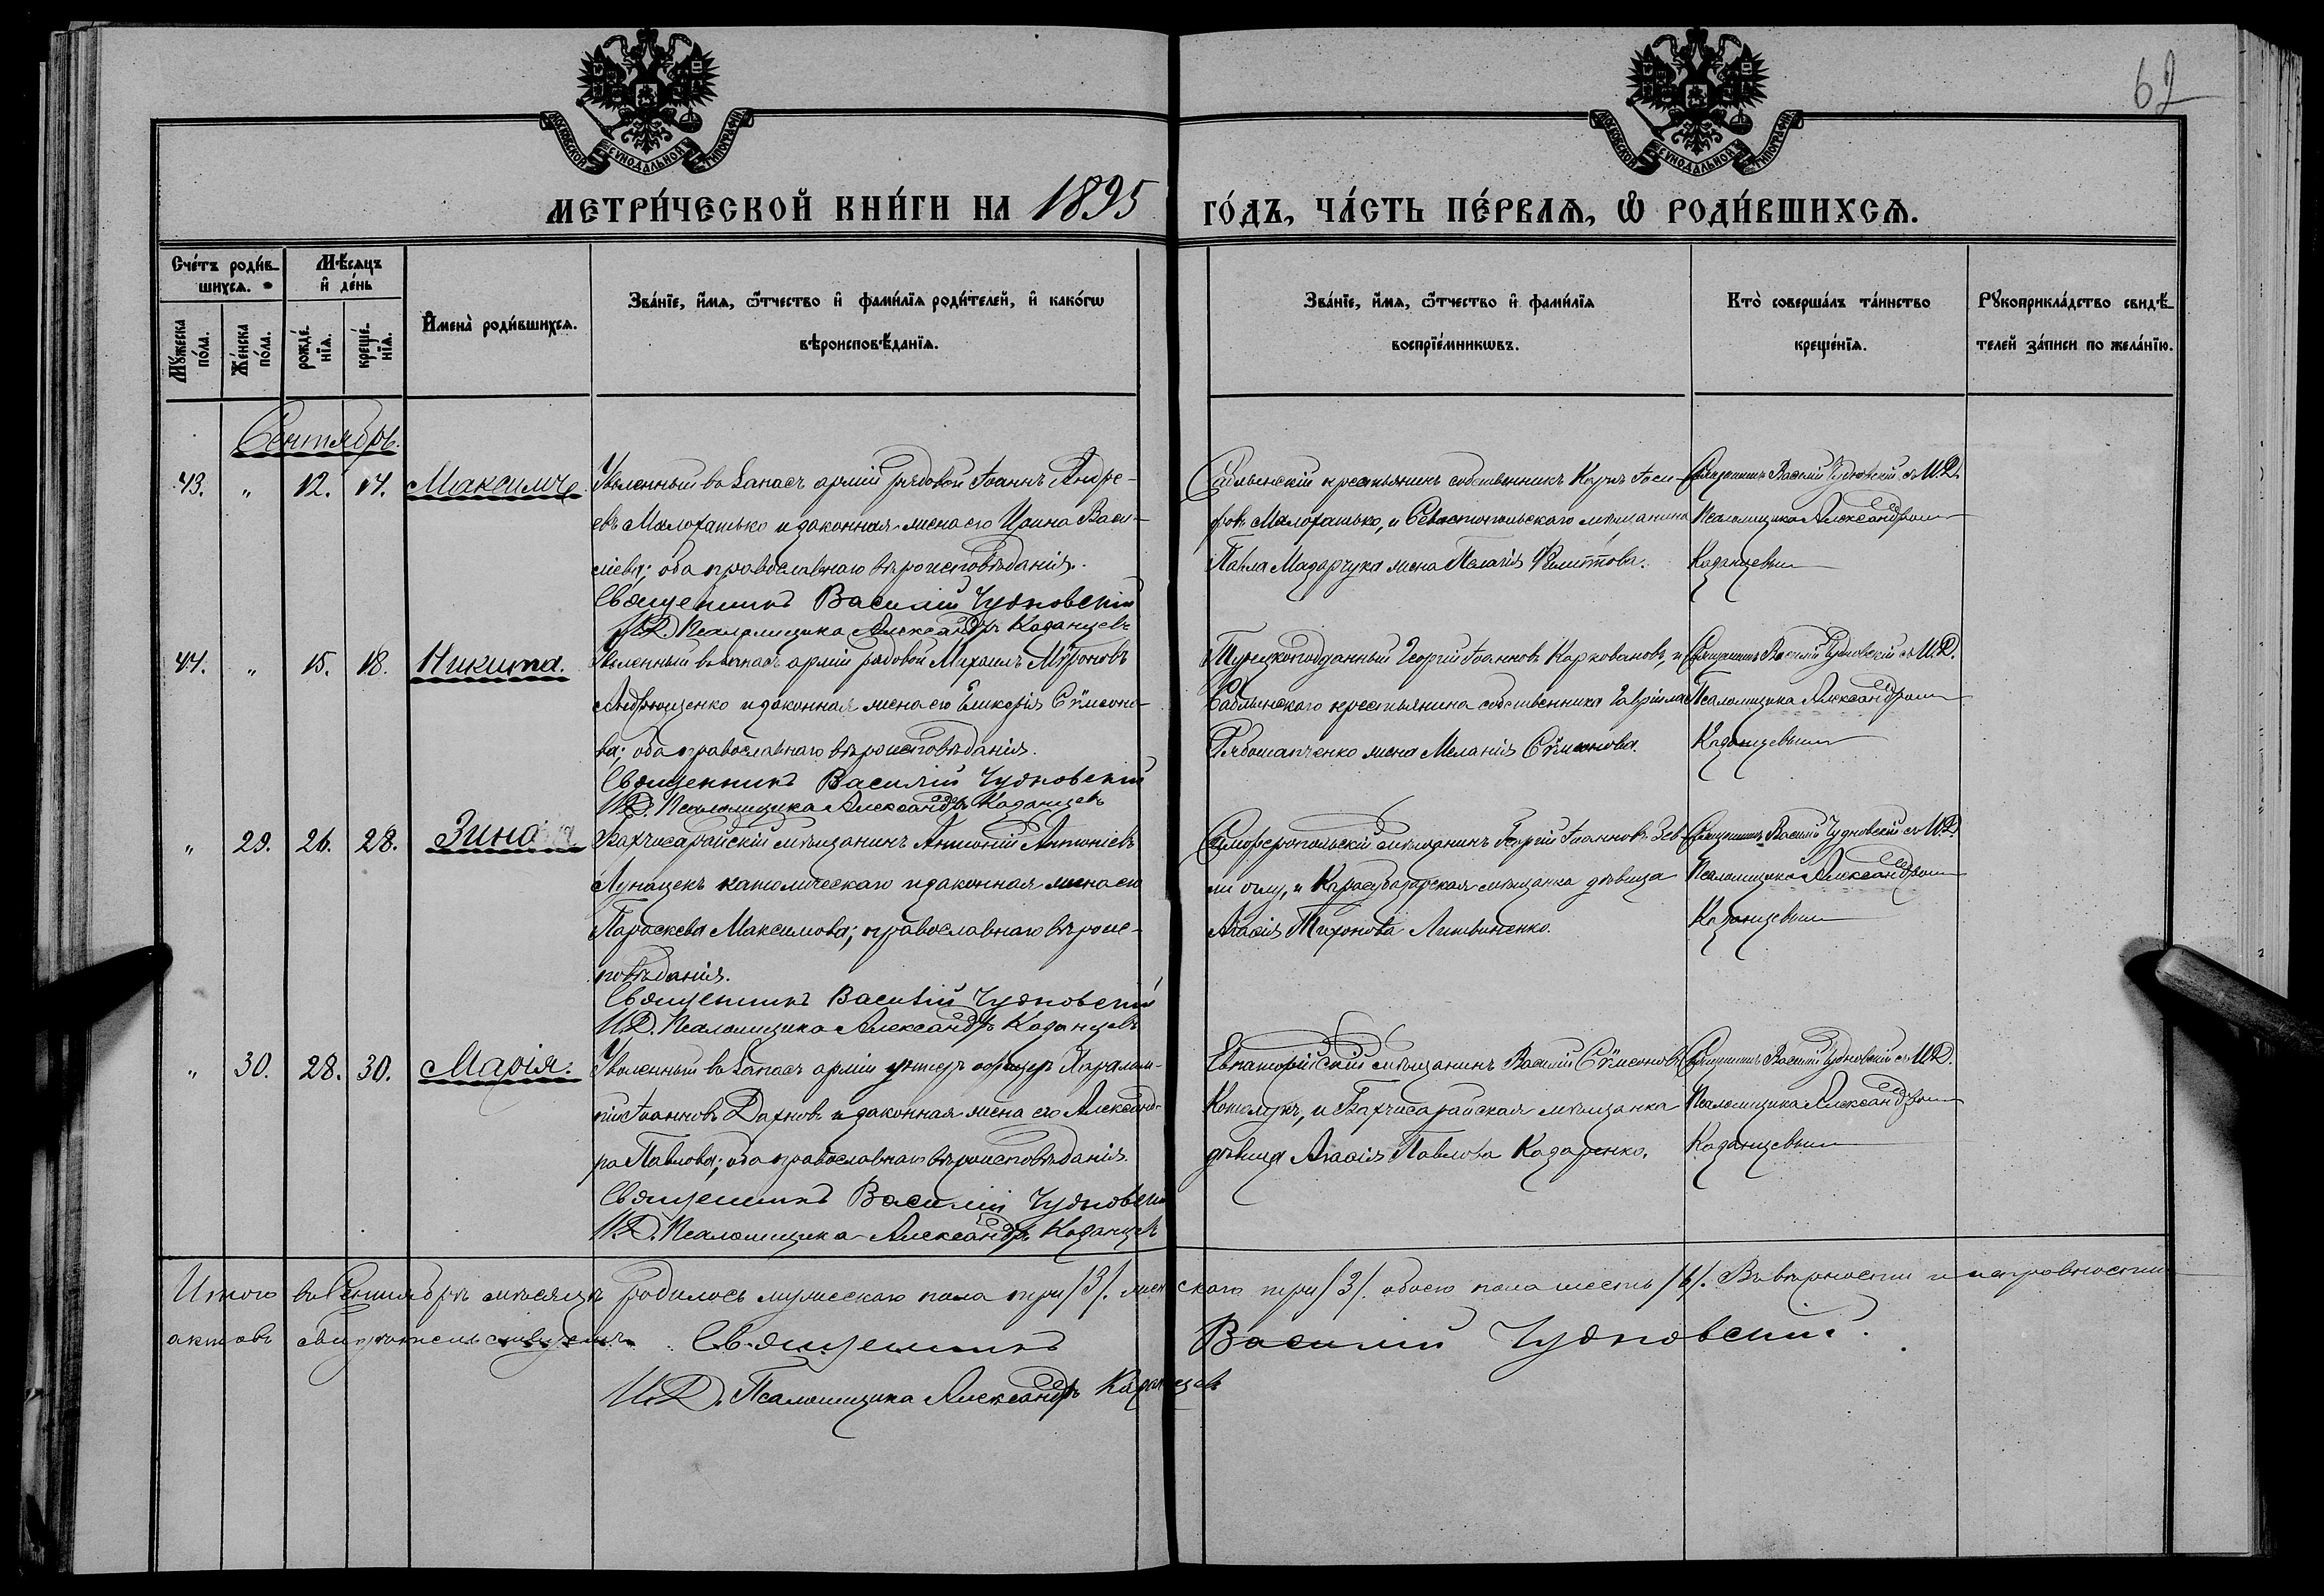 62
МОСКОВСКОЙ СѴНОДАЛЬНОЙ ТИПОГРАФІИ
МОСКОВСКОЙ СѴНОДАЛЬНОЙ ТИПОГРАФІИ
МЕТРИ́ЧЕСКОЙ КНИ́ГИ НА 1895 ГО́ДЪ, ЧА́СТЬ ПЕ́РВАѦ, Ѽ РОДИ́ВШИХСѦ.
Сче́тъ роди́в-
шихсѧ.
Мѣ́сѧцъ
и҆ де́нь
Мꙋ́жеска
по́ла.
Же́нска
по́ла.
рожде́-
нїѧ.
креще́-
нїѧ.
И҆мена̀ роди́вшихсѧ.
Зва́нїе, и҆́мѧ, ѻ҆́тчество и҆ фами́лїѧ роди́телей, и҆ како́гѡ
вѣроисповѣ́данїѧ.
Зва́нїе, и҆́мѧ, ѻ҆́тчество и҆ фами́лїѧ
воспрїе́мникѡвъ.
Кто̀ соверша́лъ та́инство
креще́нїѧ.
Рꙋкоприкла́дство свидѣ́-
телей за́писи по жела́нїю.
Сентябрь.
43. " 12. 14. Максимъ
Уволенный въ запасъ арміи рядовой Іоаннъ Андре-
евъ Малофатько и законная жена его Ирина Васи-
ліева; оба православнаго вѣроисповѣданія.
Священникъ Василій Чудновскій
И.Д. Псаломщика Александръ Казанцевъ
крестьянинъ собственникъ Карпъ
Малофатько, и Севастопольскаго мѣщанина
Павла Мазарчука жена Пелагія Филиппова.
Священникъ Василій Чудновскій съ И.Д.
Псаломщика Александромъ
Казанцевымъ
44. " 15. 18. Никита.
Уволенный въ запасъ арміи рядовой Михаилъ Мѵроновъ
Андрющенко и законная жена его Гликерія Сѵмеоно-
ва; оба православнаго вѣроисповѣданія.
Священникъ Василій Чудновскій
И.Д. Псаломщика Александръ Казанцевъ
Турецкоподданный Георгій Іоанновъ Карковановъ, и
Саблынскаго крестьянина собственника Гавріила
жена Меланія Сѵмеонова.
Священникъ Василій Чудновскій съ И.Д.
Псаломщика Александромъ
Казанцевымъ
" 29. 26. 28. Зина
Бахчисарайскій мѣщанинъ Антоній Антоніевъ
Лунацекъ католическаго и законная жена его
Параскева Максимова; православнаго вѣроис-
повѣданія.
Священникъ Василій Чудновскій
И.Д. Псаломщика Александръ Казанцевъ
Симферопольскій мѣщанинъ Георгій Іоанновъ Зев-
ли оглу, и Карасубазарская мѣщанка дѣвица
Агафія Тихонова Литвиненко.
Священникъ Василій Чудновскій съ И.Д.
Псаломщика Александромъ
Казанцевымъ
" 30. 28. 30. Марія.
Уволенный въ запасъ арміи унтеръ офицеръ Харалам-
пій Іоанновъ Дахновъ и законная жена его Александ-
ра Павлова; оба православнаго вѣроисповѣданія.
Священникъ Василій Чудновскій
И.Д. Псаломщика Александръ Казанцевъ
Евпаторійскій мѣщанинъ Василій Сѵмеоновъ
и Бахчисарайская мѣщанка
дѣвица Агафія Павлова Казаренко.
Священникъ Василій Чудновскій съ И.Д.
Псаломщика Александромъ
Казанцевымъ
Итого въ Сентябрѣ мѣсяцѣ родилось мужескаго пола три /3/. женскаго три /3/. обоего пола шесть /6/. Въ вѣрности и исправности
актовъ свидѣтельствуемъ. Священникъ Василій Чудновскій.
И.Д. Псаломщика Александръ Казанцевъ